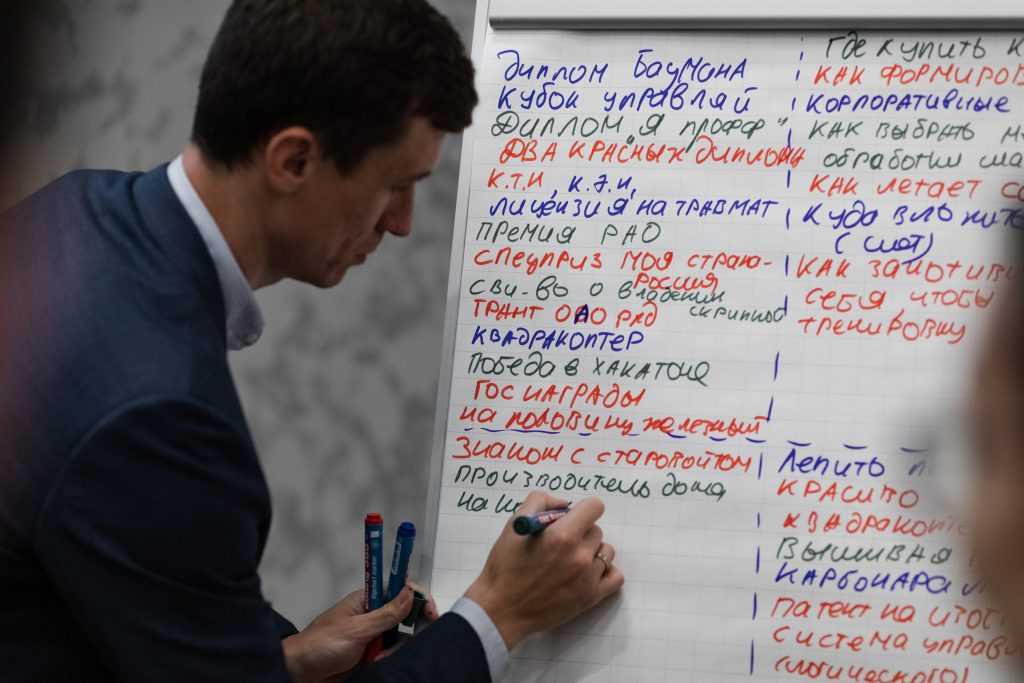 диплом Баумана
Кубок управляй
Диплом „Я профф"
ДВА КРАСНЫХ диплома
К.Т.Н, К.Э.Н,
лицензия на травмат
премия РАО
спецприз моя страна-
Россия
сви-во о владении
скрипкой
ГРАНТ ОАО РЖД
квадракоптер
победа в хакатоне
Гос награды
на половину железный
Знаком с старовойтом
производитель дома
на
где купить к
как формиров
корпоративные
как выбрать
обработки
как летает са
куда вложить
(                )
как замотиви
себя чтобы
тренировку
Лепить п
красиво
квадракопте
вышивная
карбонара
патент на
система управ